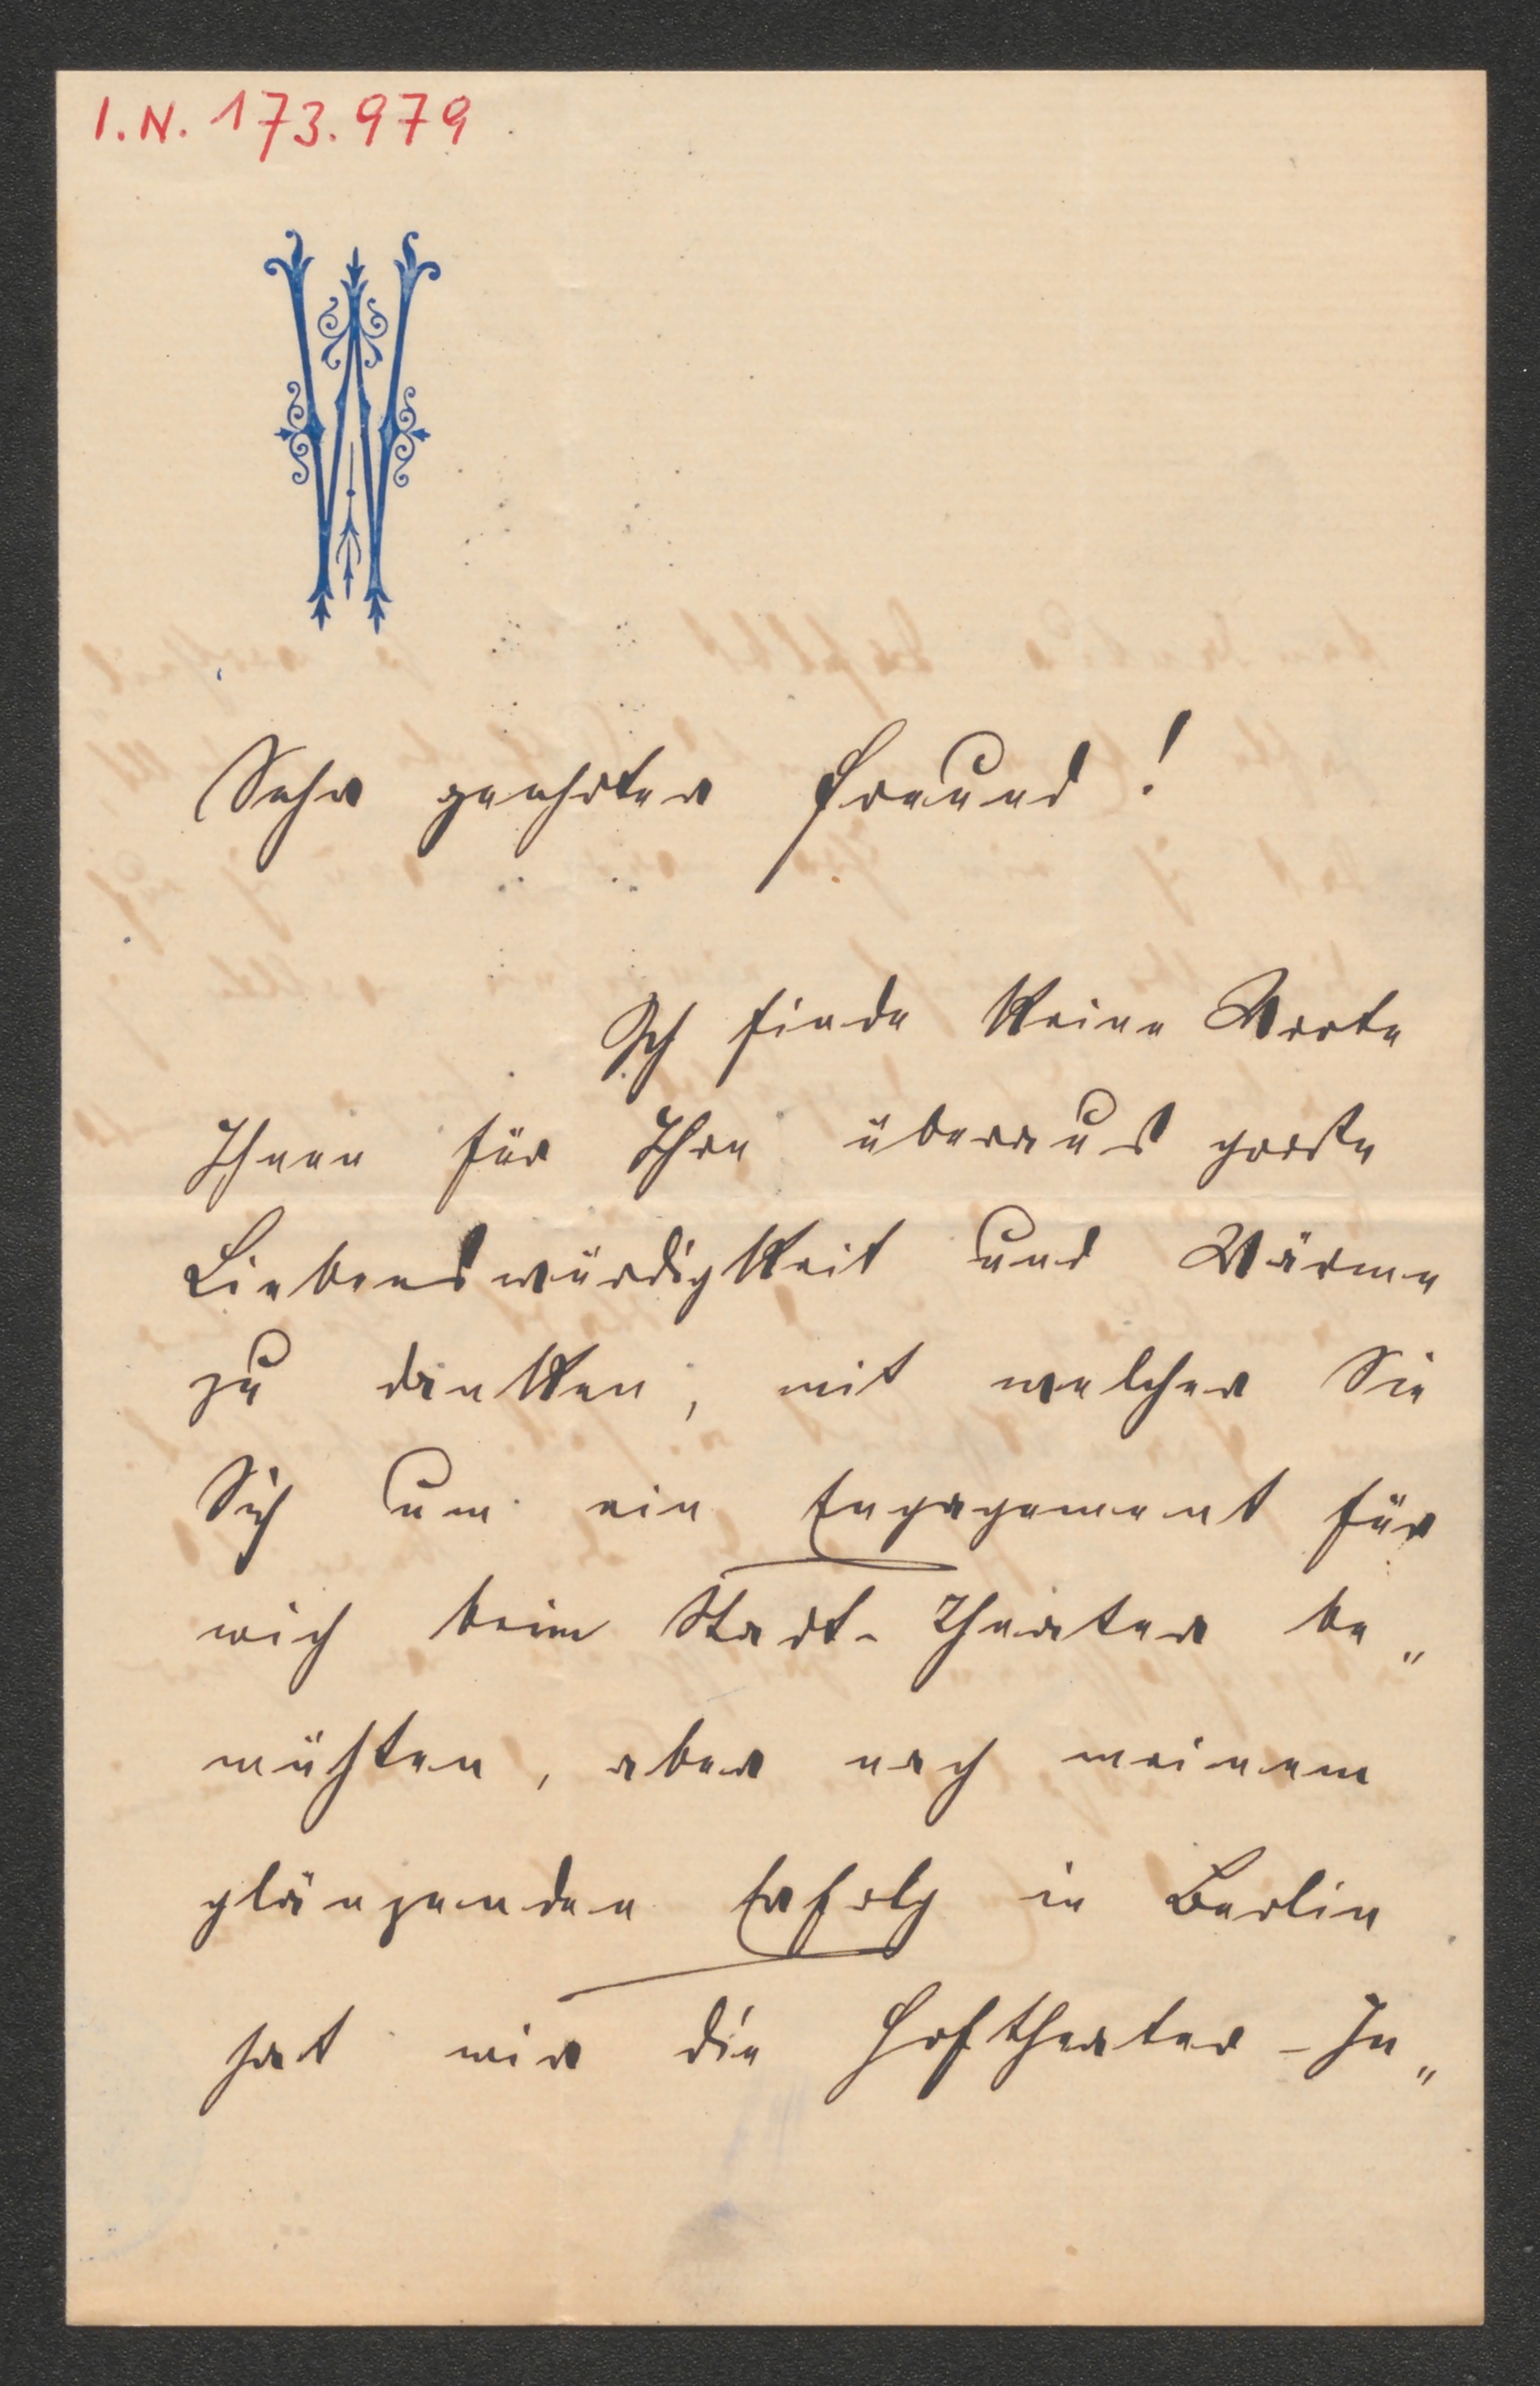 I.N. 173.979
W
Sehr geehrter Freund!
Ich finde keine Worte
Ihnen für Ihre überaus große
Liebenswürdigkeit und Wärme
zu danken, mit welcher Sie
Sich um ein Engagement für
mich beim Stadt-Theater be„
mühten, aber nach meinem
glänzenden Erfolg in Berlin
hat mir die Hoftheater-In„